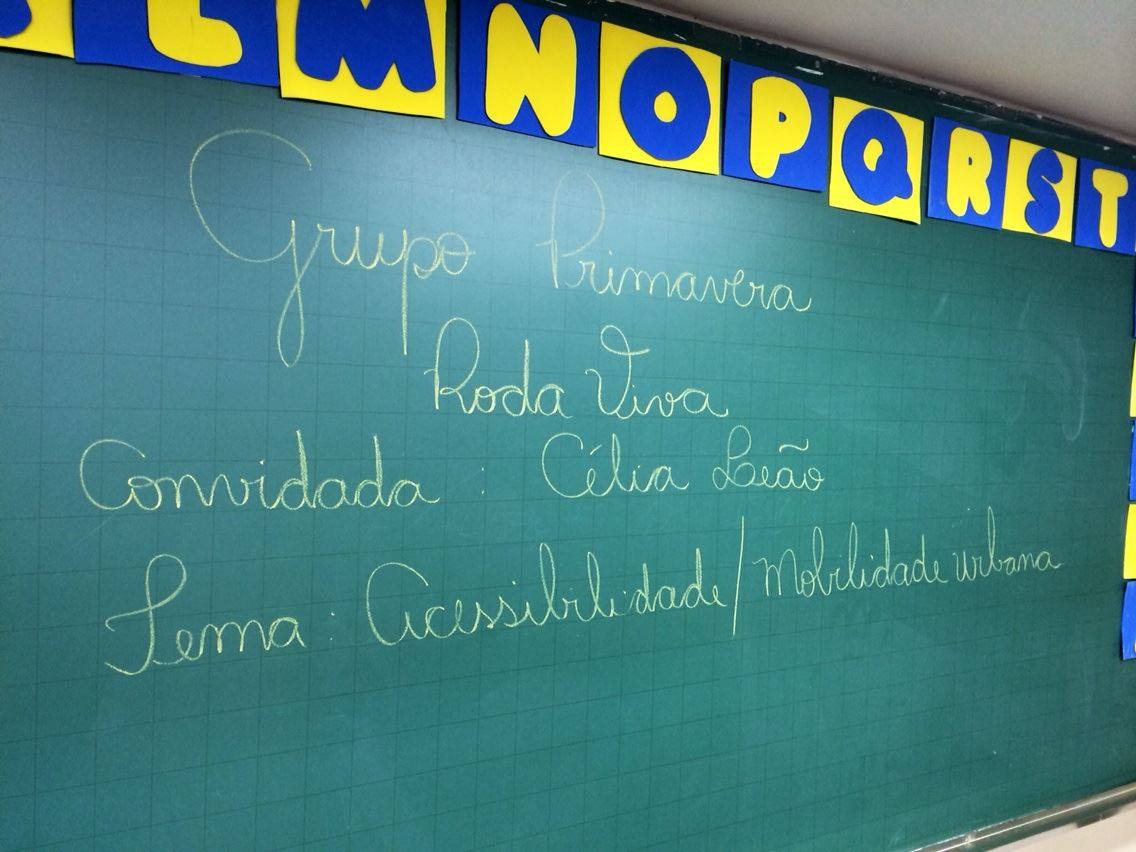 L M N O P Q R S T
Grupo Primavera
Roda Viva
Convidada : Célia Leão
Tema : Acessibilidade/Mobilidade urbana